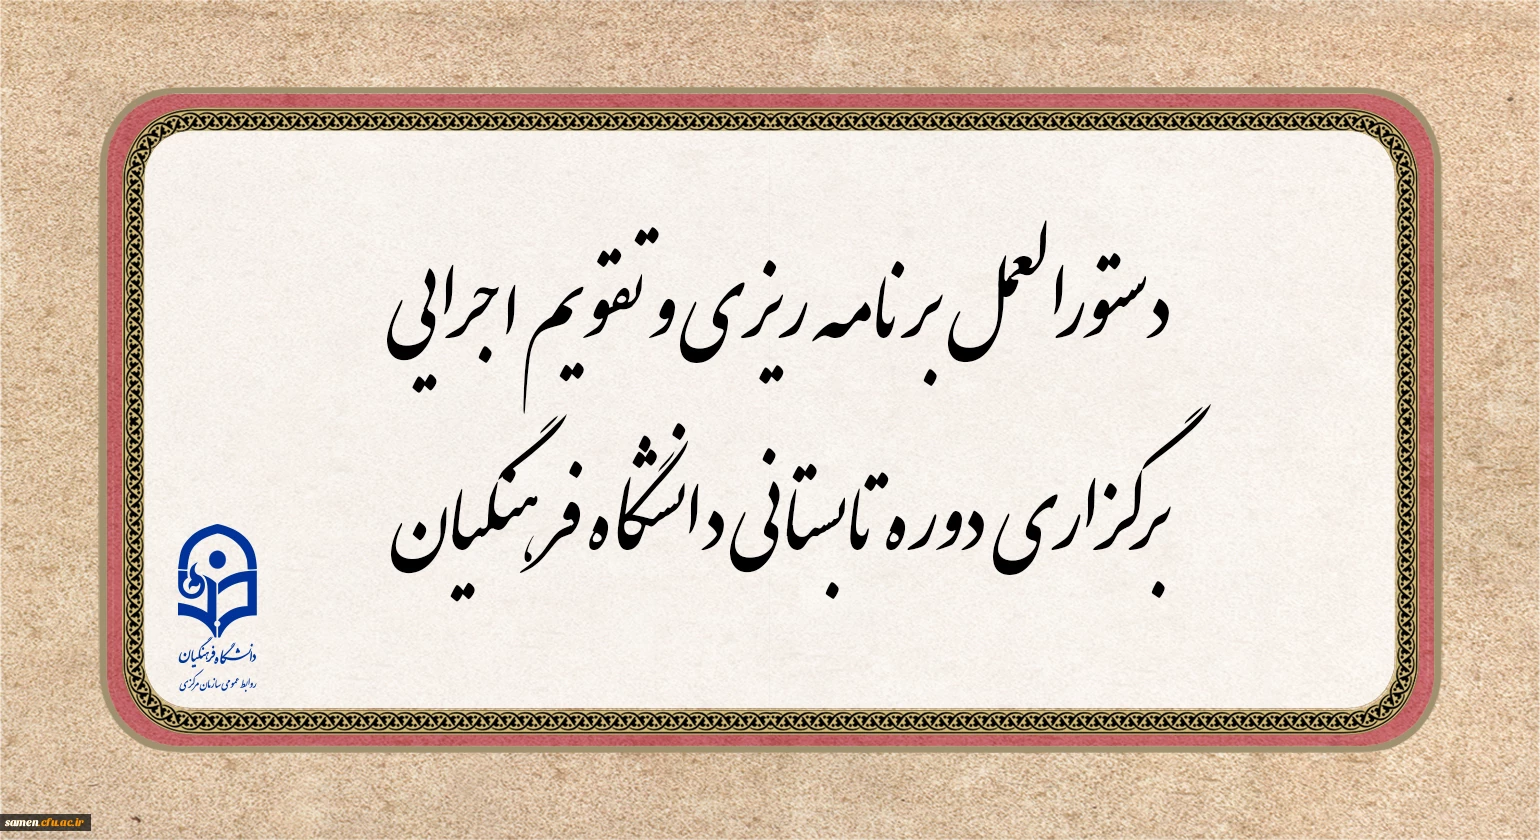 دستورالعمل برنامه ریزی و تقویم اجرایی
برگزاری دوره تابستانی دانشگاه فرهنگیان
دانشگاه فرهنگیان
روابط عمومی سازمان مرکزی
samen.cfu.ac.ir